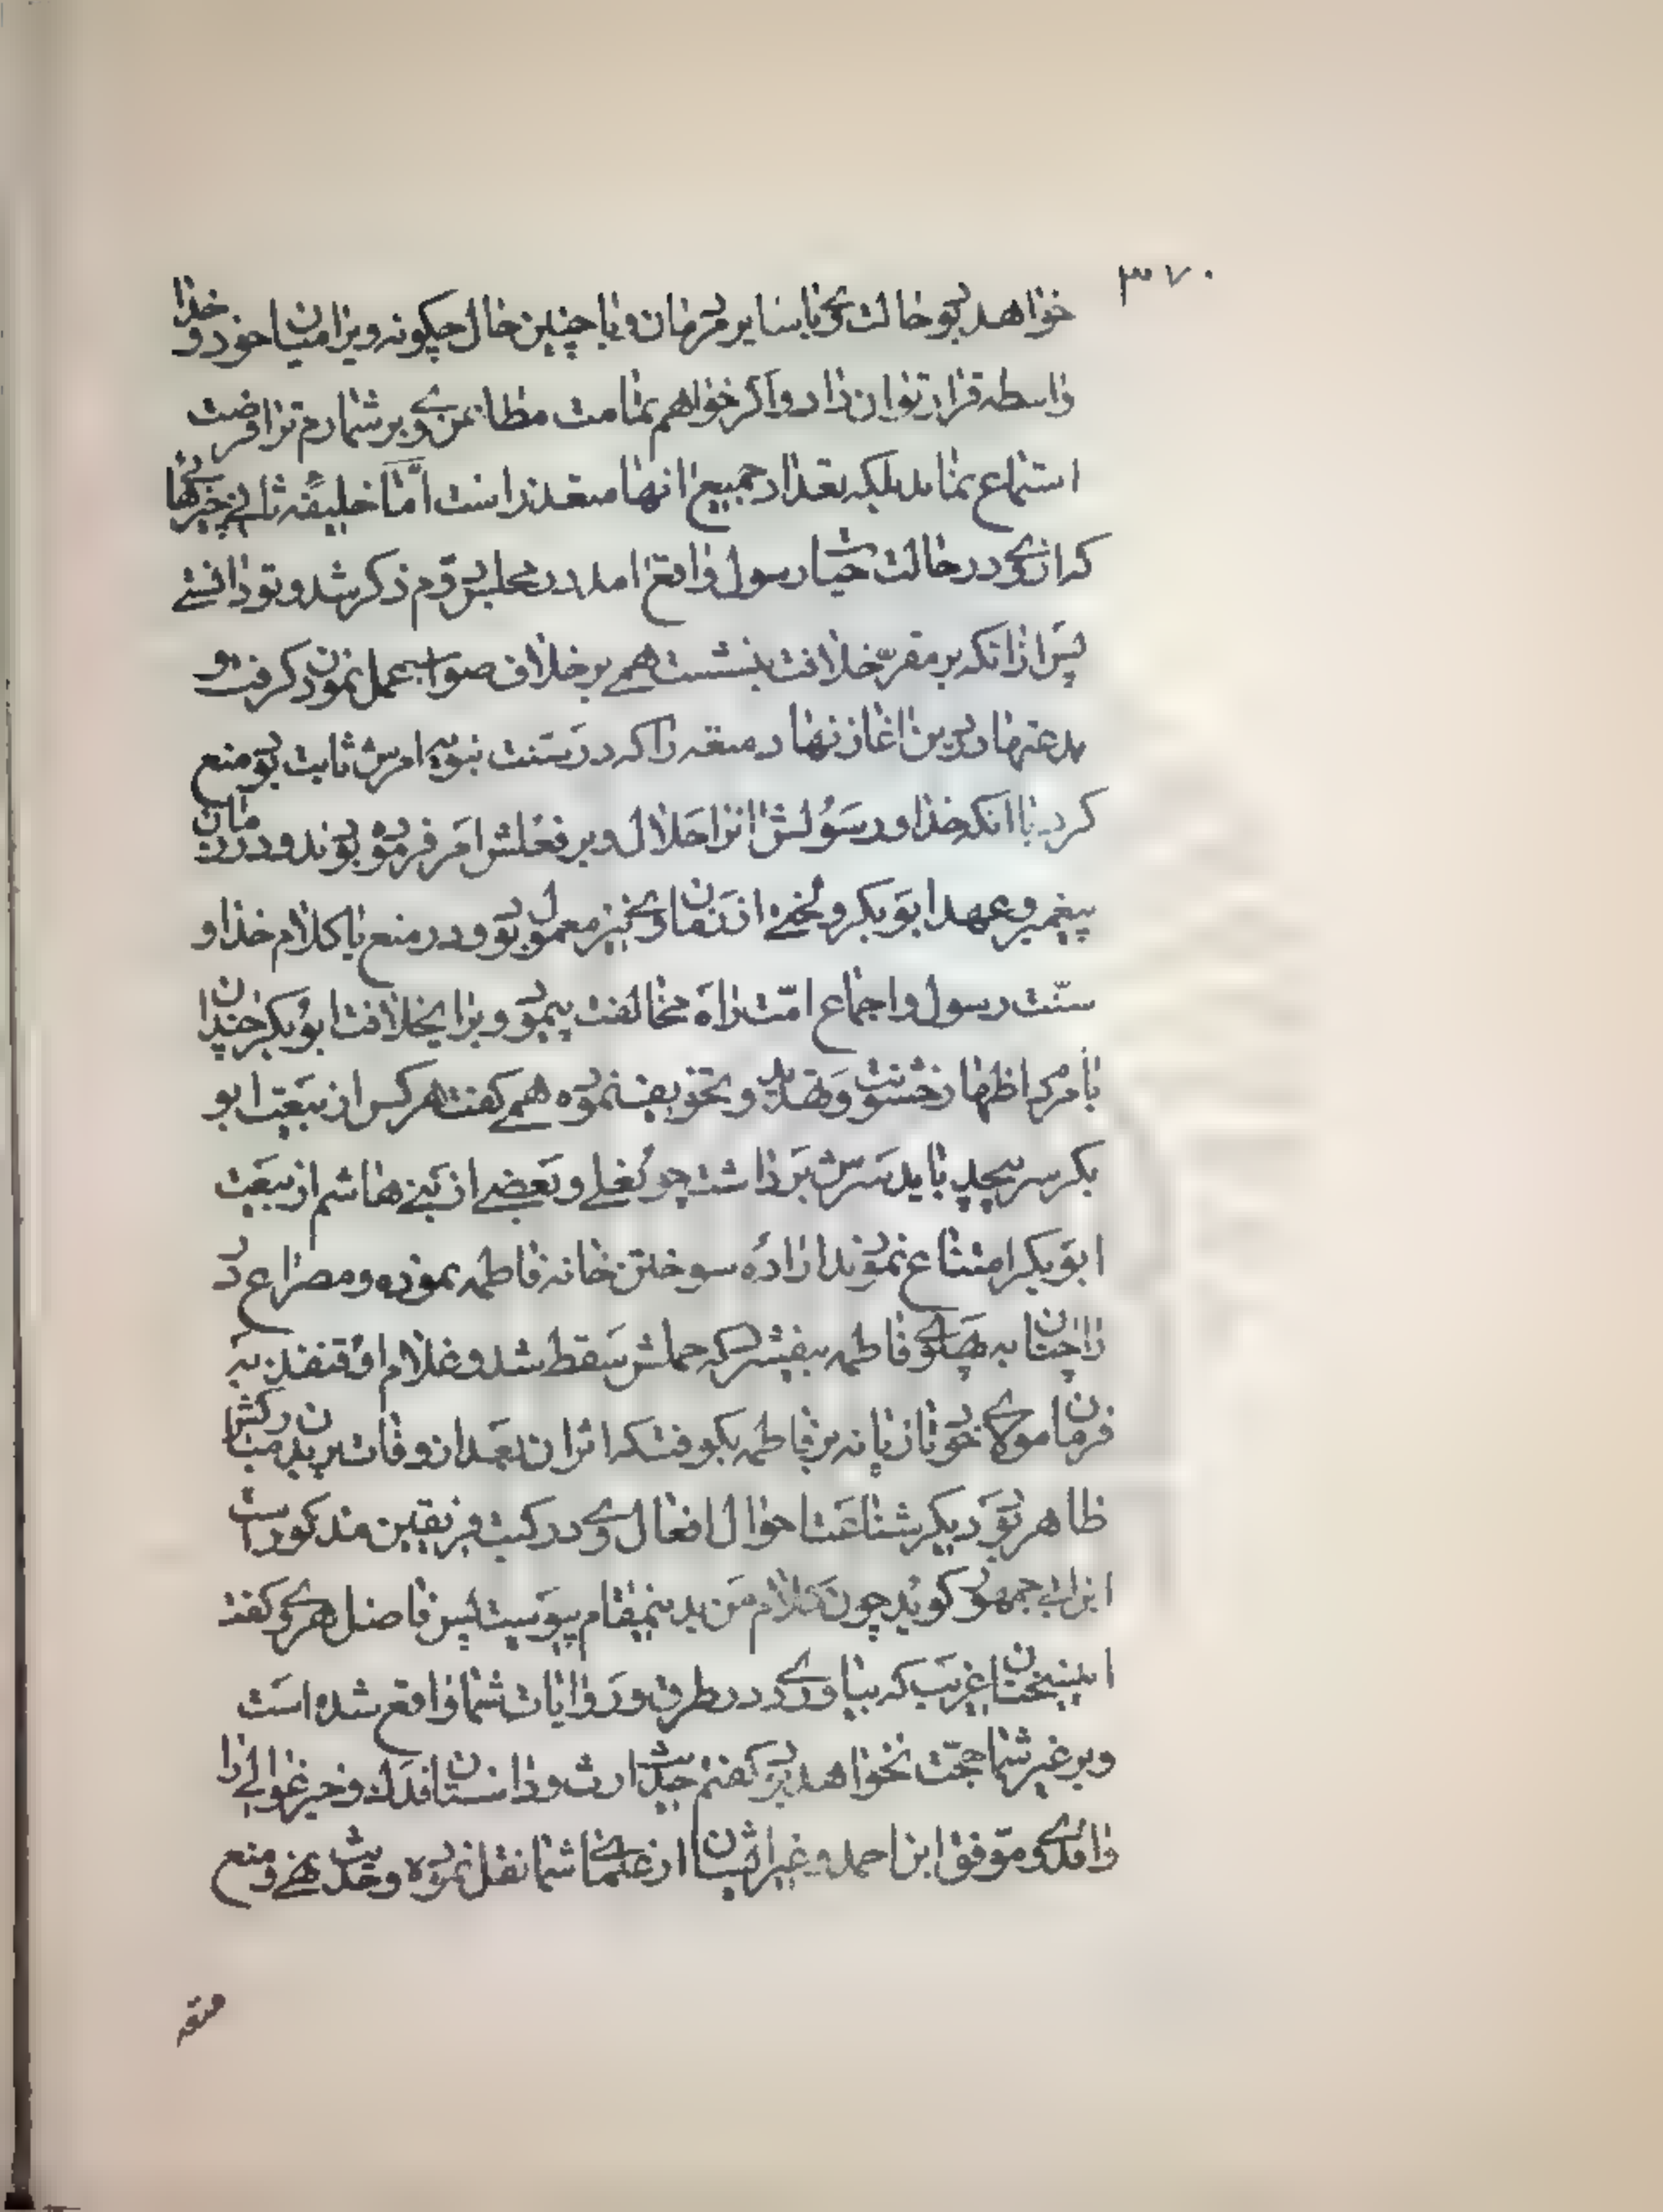 ۳۷۰
خواهد بود حالت وی با سایر مردمان و با چنین حال چگونه ویرا میان خود و خدا
واسطه قرار توان داد و اگر خواهم تمامت مطاعن وی بر شمارم ترا فرصت
استماع نماند بلکه تعداد جمیع انها متعذر است امّا خلیفه ثانی چیزهائی
که از وی در حالت حیات رسول واقع امد در مجلس دوم ذکر شد و تو دانستی
پس از انکه بر مقرّ خلافت بنشست همی بر خلاف صواب عمل نمودن گرفت و
بدعتها در دین اغاز نهاد متعه را که در سنت نبویه امرش ثابت بود منع
کرد با انکه خدا و رسولش انرا حلال و بر فعلش امر فرموده بودند و در زمان
پیغمبر و عهد ابو بکر و لختی از زمان وی نیز معمول بود و در منع با کلام خدا و
سنّت رسول و اجماع امّت راه مخالفت پیمود و برای خلافت ابو بکر چندان
با مردم اظهار خشونت و تهدید و تخویف نموده همی گفت هر کس از بیعت ابو
بکر سر پیچد باید سرش برداشت چو علی و بعضی از بنی هاشم از بیعت
ابو بکر امتناع نمودند اراده سوختن خانه فاطمه نموده و مصراع در
را چنان به پهلوی فاطمه بیفشرد که حملش سقط شد و غلام او قنفذ به
فرمان مولای خود تازیانه بر فاطمه بکوفت که اثر ان بعد از وفات بر بدن مبارکش
ظاهر بود دیگر شناعت احوال افعال وی در کتب فریقین مذکور است
ابن ابی جمهور گوید چون کلام من بدینمقام پیوست پس فاضل هروی گفت
اینسخنان غریب که بیاوردی در طرق و روایات شما واقع شده است
و بر غیر شما حجّت نخواهد بود گفتم حدیث ارث و داستان فدک و خبر عوالی را
واقدی و موفق ابن احمد و غیر ایشان از علمای شما نقل نموده و حدیث نهی و منع
متعه